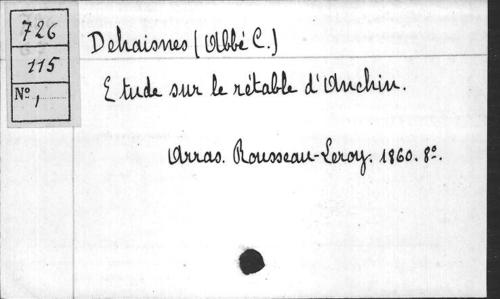 726
115
Nº 1
Dehaisnes (Abbé C.)
Etude sur le rétable d'Anchin.
Arras. Rousseau-Leroy. 1860. 8º.